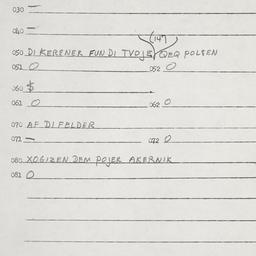 030 —
040 —
(147)
050 DI KERENER FUN DI TVOJE QEQ POLSEN
051 O 052 O
060 $
061 O 062 O
070 AF DI FELDER
071 — 072 O
080 XOGIZEN DEM POJER AKERNIK
081 O